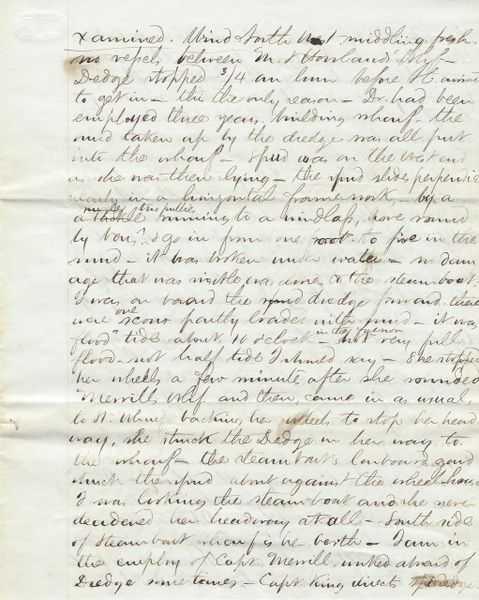 xamined. Wind South West middling fresh.
no vessels between M. & Howland's Whf -
Dredge stopped 3/4 an hour before St. came
to get in - this the only reason - Dr. had been
employed three years, building wharf. the
mud taken up by the dredge was all put
into the wharf - Spud was on the West end
as she was then lying - the spud slides perpendic
ularly in a horizontal framework, by a
two pullies
a running to a windlass, hove round
by bars & go in from one foot to five in the
mud - it was broken under water - no dam
age that was visible was done to the steamboat.
I was on board the dredge forward. there
were one scow partly loaded with mud - it was
flood tide about 10 o'clock in the forenoon - not very full
flood - not half tide I should say - She stopped
her wheels a few minutes after she rounded
Merrills Whf and then, came in as usual
to St. Whrf backing her wheels to stop her head
way, she struck the Dredge in her way to
the wharf - the steamboat's larboard guard
struck the spud abut against the wheel house.
I was looking the steamboat and she never
deadened her headway at all - South side
of Steamboat wharf is her berth - I am in
the employ of Capt. Merrill, worked aboard of
Dredge sometimes - Capt King directs